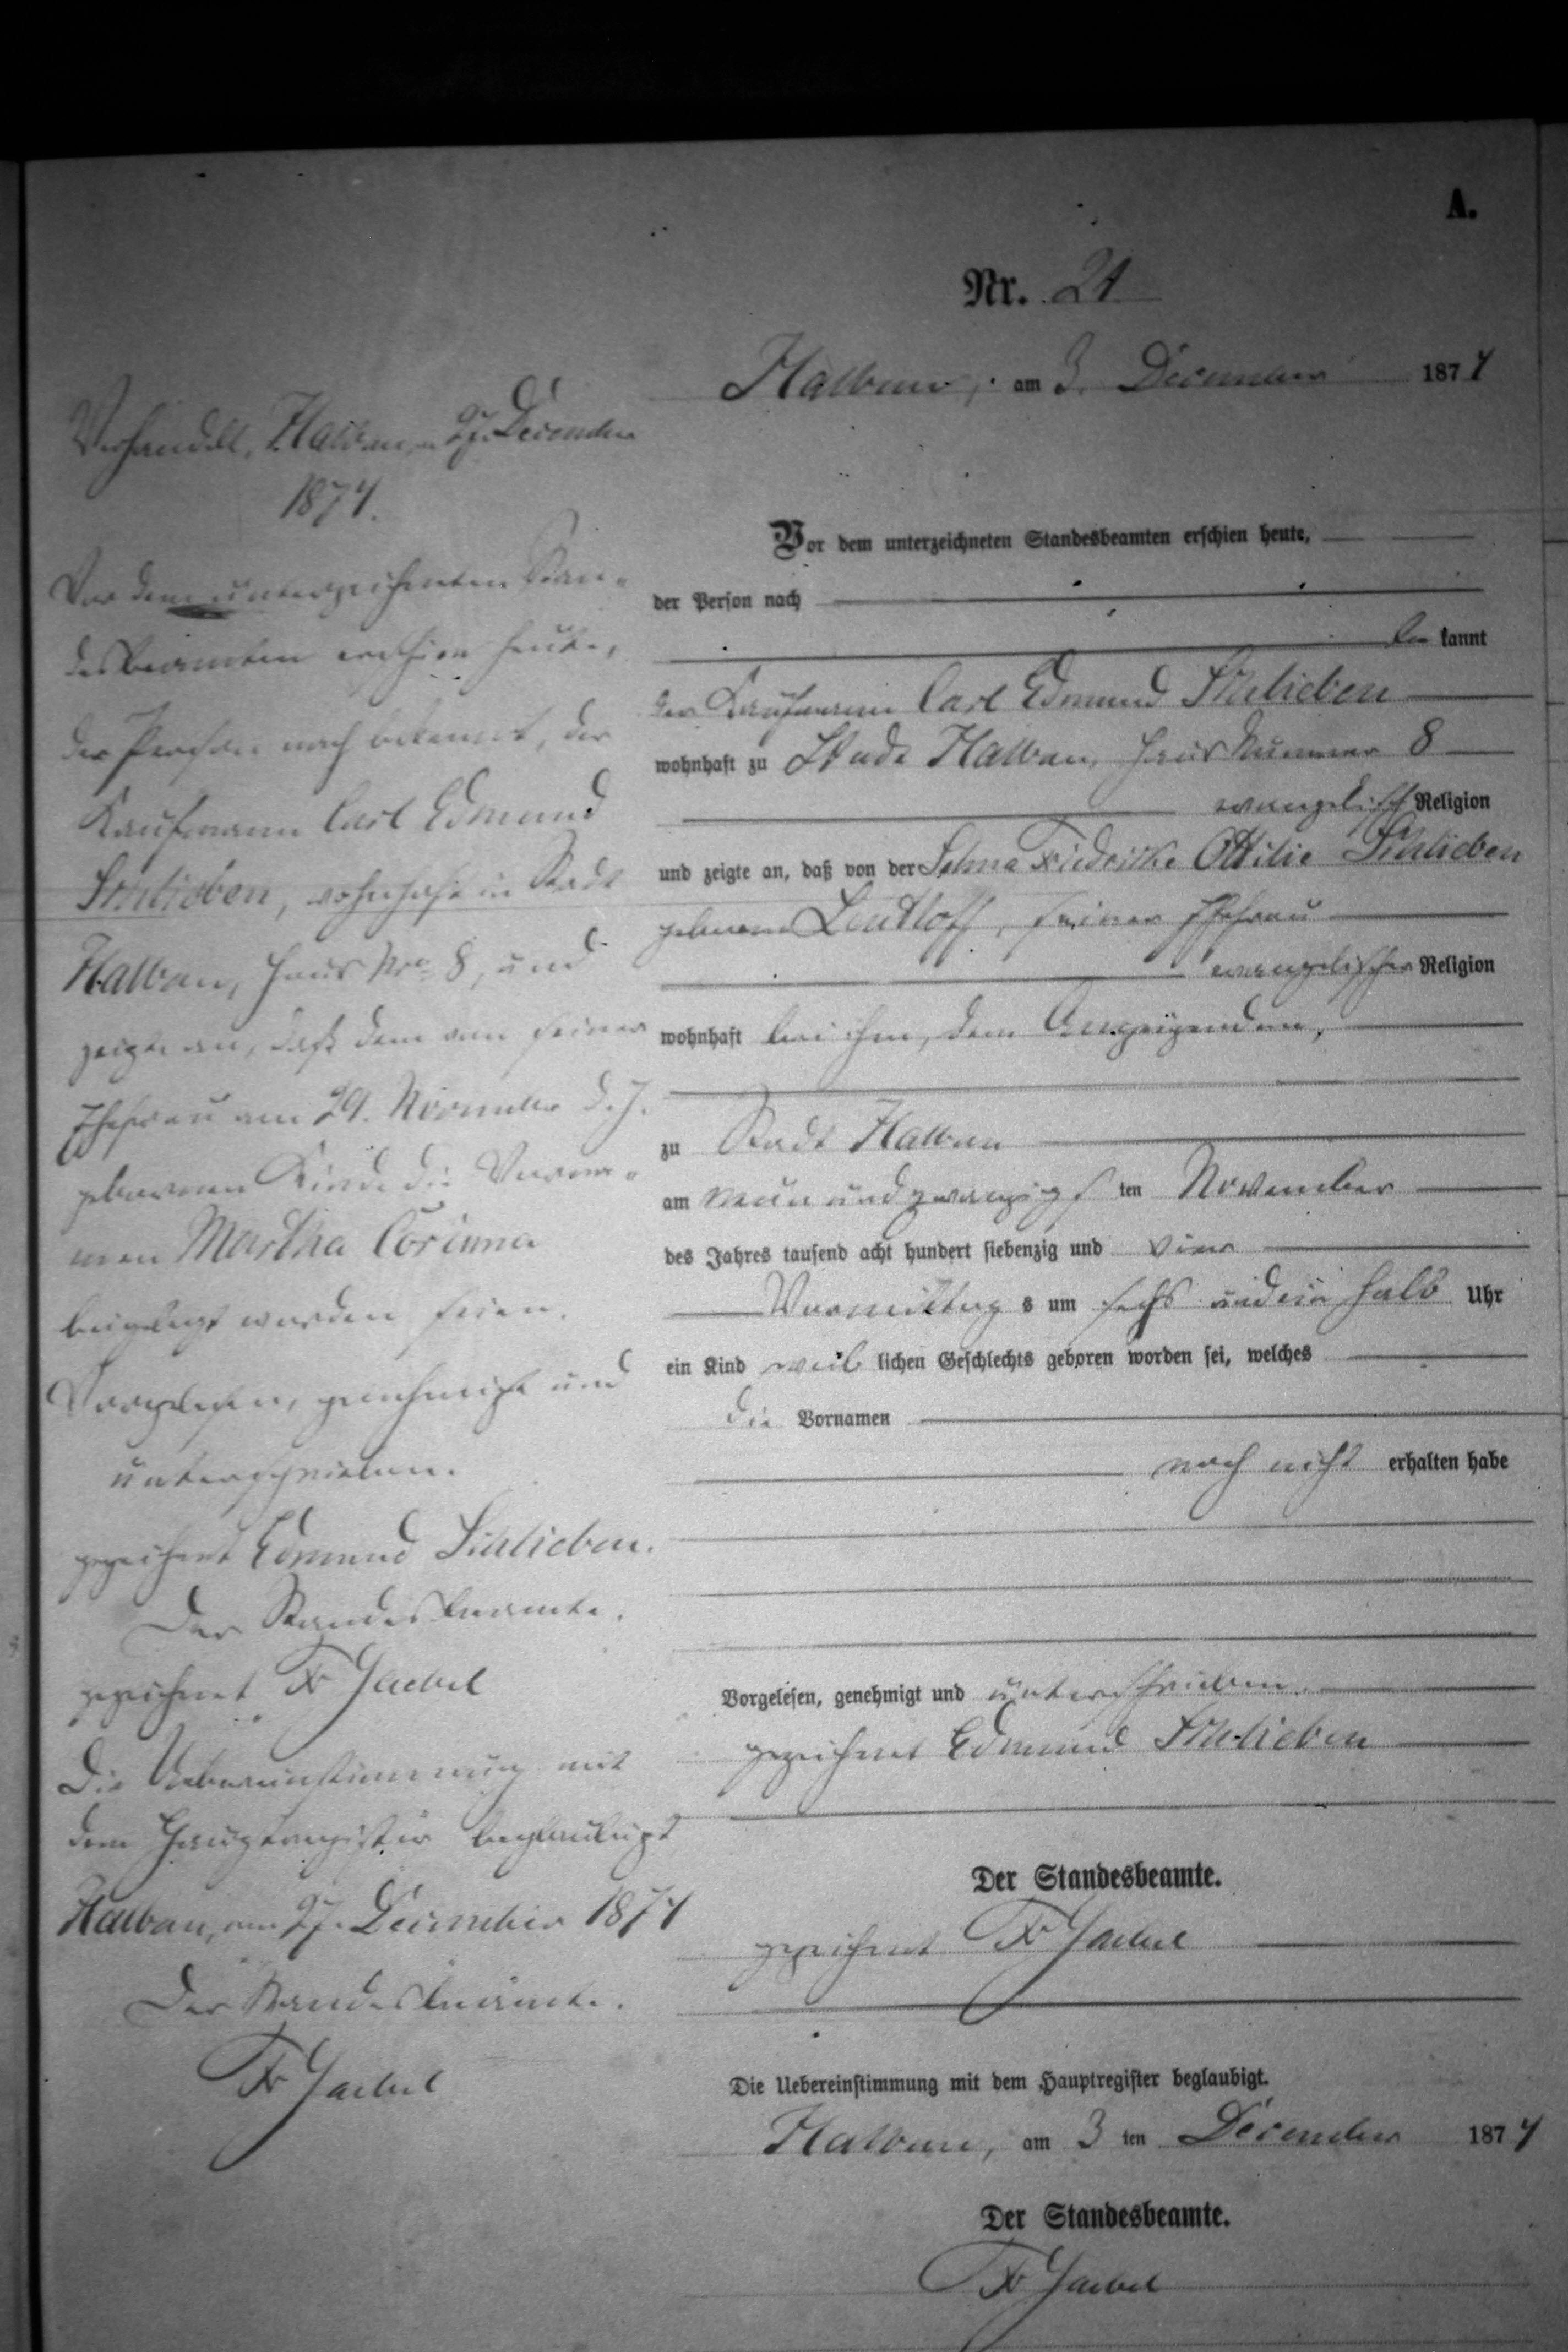 A.
Nr. 21
Halbau, am 3. December 1874
Vor dem unterzeichneten Standesbeamten erschien heute,
der Person nach
bekannt
der Kaufmann Carl Edmund Schlieben
wohnhaft zu Stadt Halbau, Haus Nummer 8
evangelisch Religion
und zeigte an, daß von der Selma Friedricke Ottilie Schlieben
geborene Leuthloff, seiner Ehefrau
evangelischer Religion
wohnhaft bei ihm, dem Anzeigenden,
zu Stadt Halbau
am neun und zwanzigsten November
des Jahres tausend acht hundert siebenzig und vier
Vormittags um sechs und ein halb Uhr
ein Kind weiblichen Geschlechts geboren worden sei, welches
die Vornamen
noch nicht erhalten habe
Vorgelesen, genehmigt und unterschrieben.
gezeichnet Edmund Schlieben
Der Standesbeamte.
gezeichnet Fr Jaebel
Die Uebereinstimmung mit dem Hauptregister beglaubigt.
Halbau, am 3 ten December 1874
Der Standesbeamte.
Fr Jaebel
Verhandelt, Halbau, 27. December
1874.
Vor dem unterzeichneten Stan-
desbeamten erschien heute,
der Person nach bekannt, der
Kaufmann Carl Edmund
Schlieben, wohnhaft in Stadt
Halbau, Haus Nro 8, und
zeigte an, daß dem von seiner
Ehefrau am 29. November d. J.
geborenen Kinde die Vorna-
men Martha Corinna
beigelegt worden seien.
Vorgelesen, genehmigt und
unterschrieben.
gezeichnet Edmund Schlieben.
Der Standesbeamte.
gezeichnet Fr Jaebel
Die Uebereinstimmung mit
dem Hauptregister beglaubigt
Halbau, am 27. December 1874
Der Standesbeamte.
Fr Jaebel